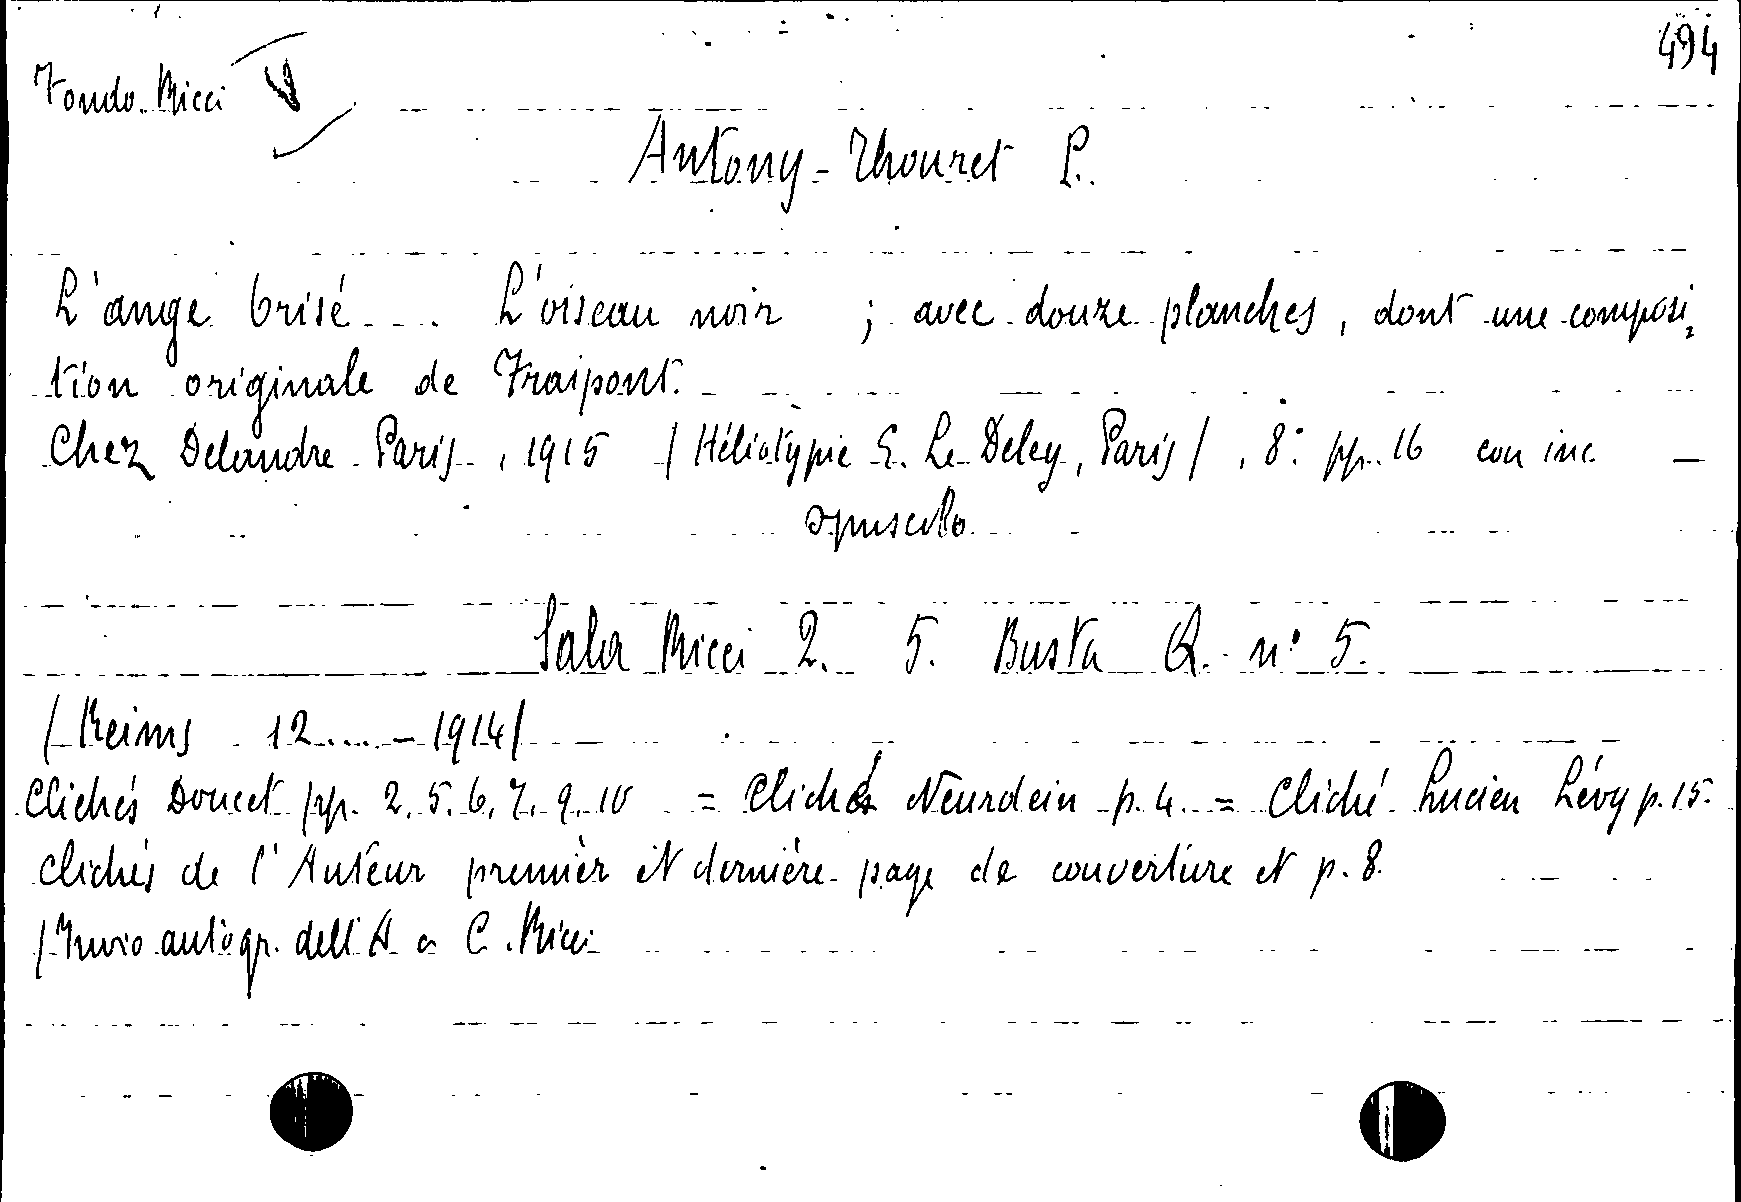 494
Fondo Ricci V
Antony-Thouret P.
L'ange brisé... L'oiseau noir ; avec douze planches, dont une composi=
tion originale de Fraipont.
Chez Delandre Paris, 1915 / Héliotypie E. Le Deley, Paris / , 8° pp. 16 con inc. —
opuscolo
Sala Ricci 2. 5. Busta Q. n° 5.
/ Reims 12....-1914 /
Clichés Doucet pp. 2. 5. 6. 7. 9. 10 = Clichés Neurdein p. 4. = Cliché Lucien Lévy p. 15.
Clichés de l'Auteur premièr et dernière page de couverture et p. 8.
/ Invio autogr. dell'A a C. Ricci